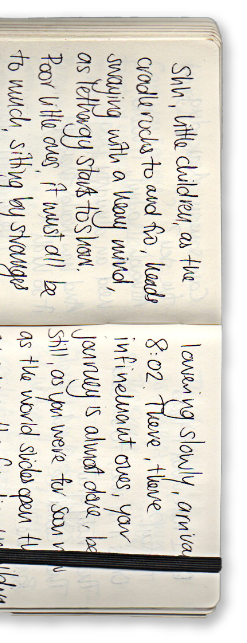 Shh, little children, as the
cradle rocks to and fro, heads
swaying with a heavy mind
as lethargy starts to show.
Poor little ones, it must all be
to much, sitting by stranges
lowering slowly, arriva
8:02. There, there
infinelment ones, your
journey is almost done, be
still, as you were for soon
as the world slides open th